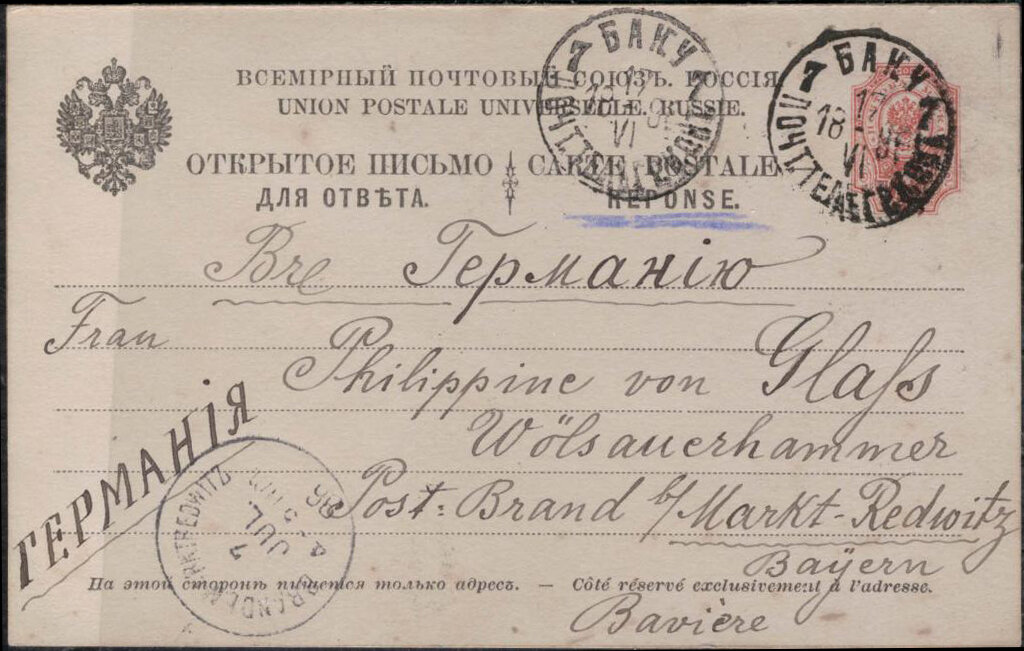 ВСЕМІРНЫЙ ПОЧТОВЫЙ СОЮЗЪ. РОССІЯ
UNION POSTALE UNIVERSELLE. RUSSIE.
ОТКРЫТОЕ ПИСЬМО CARTE POSTALE
ДЛЯ ОТВѢТА. RÉPONSE.
7 БАКУ 7
18 VI
ПОЧТ. ТЕЛЕГР. КОНТ.
7 БАКУ 7
18 VI
ПОЧТ. ТЕЛЕГР. КОНТ.
Германію
Frau
Philippine von Glaſs
Wölsauerhammer
Post: Brand b/Markt-Redwitz
Bayern
Bavière
ГЕРМАНІЯ
BRAND MARKTREDWITZ
5 JUL
96
На этой сторонѣ пишется только адресъ. — Côté réservé exclusivement à l'adresse.